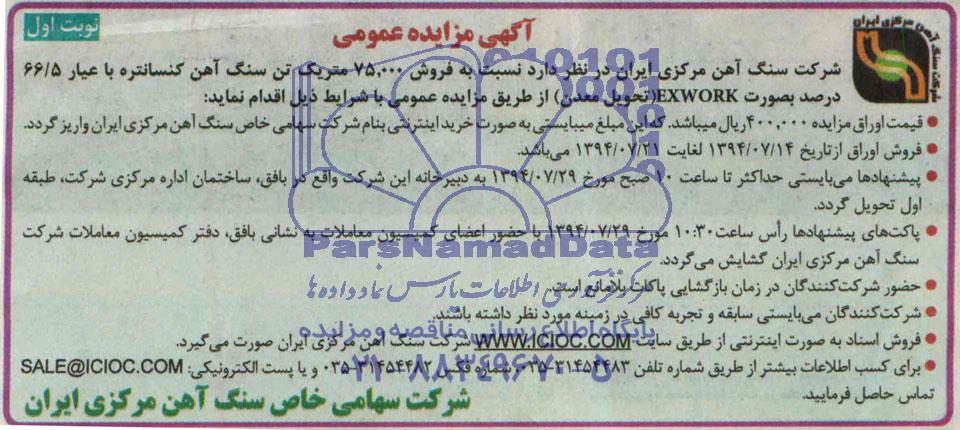 نوبت اول
آگهی مزایده عمومی
شرکت سنگ آهن مرکزی ایران
شرکت سنگ آهن مرکزی ایران در نظر دارد نسبت به فروش ۷۵,۰۰۰ متریک تن سنگ آهن کنسانتره با عیار ۶۶/۵
درصد بصورت EXWORK(تحویل معدن) از طریق مزایده عمومی با شرایط ذیل اقدام نماید:
● قیمت اوراق مزایده ۴۰۰,۰۰۰ریال میباشد. که این مبلغ میبایستی به صورت خرید اینترنتی بنام شرکت سهامی خاص سنگ آهن مرکزی ایران واریز گردد.
● فروش اوراق ازتاریخ ۱۳۹۴/۰۷/۱۴ لغایت ۱۳۹۴/۰۷/۲۱ می‌باشد.
● پیشنهادها می‌بایستی حداکثر تا ساعت ۱۰ صبح مورخ ۱۳۹۴/۰۷/۲۹ به دبیرخانه این شرکت واقع در بافق، ساختمان اداره مرکزی شرکت، طبقه
اول تحویل گردد.
● پاکت‌های پیشنهادها رأس ساعت۱۰:۳۰ مورخ ۱۳۹۴/۰۷/۲۹ با حضور اعضای کمیسیون معاملات به نشانی بافق، دفتر کمیسیون معاملات شرکت
سنگ آهن مرکزی ایران گشایش می‌گردد.
● حضور شرکت‌کنندگان در زمان بازگشایی پاکات بلامانع است.
● شرکت‌کنندگان می‌بایستی سابقه و تجربه کافی در زمینه مورد نظر داشته باشند.
● فروش اسناد به صورت اینترنتی از طریق سایت WWW.ICIOC.COM شرکت سنگ آهن مرکزی ایران صورت می‌گیرد.
● برای کسب اطلاعات بیشتر از طریق شماره تلفن ۳۱۴۵۴۴۸۳-۰۳۵ شماره فکس ۳۱۴۵۴۴۸۲-۰۳۵ و یا پست الکترونیکی: SALE@ICIOC.COM
تماس حاصل فرمایید.
شرکت سهامی خاص سنگ آهن مرکزی ایران
ParsNamadData
مرکز فرآوری اطلاعات پارس نماد داده ها
پایگاه اطلاع رسانی مناقصه و مزایده
۰۲۱-۸۸۳۴۹۶۷۰-۵